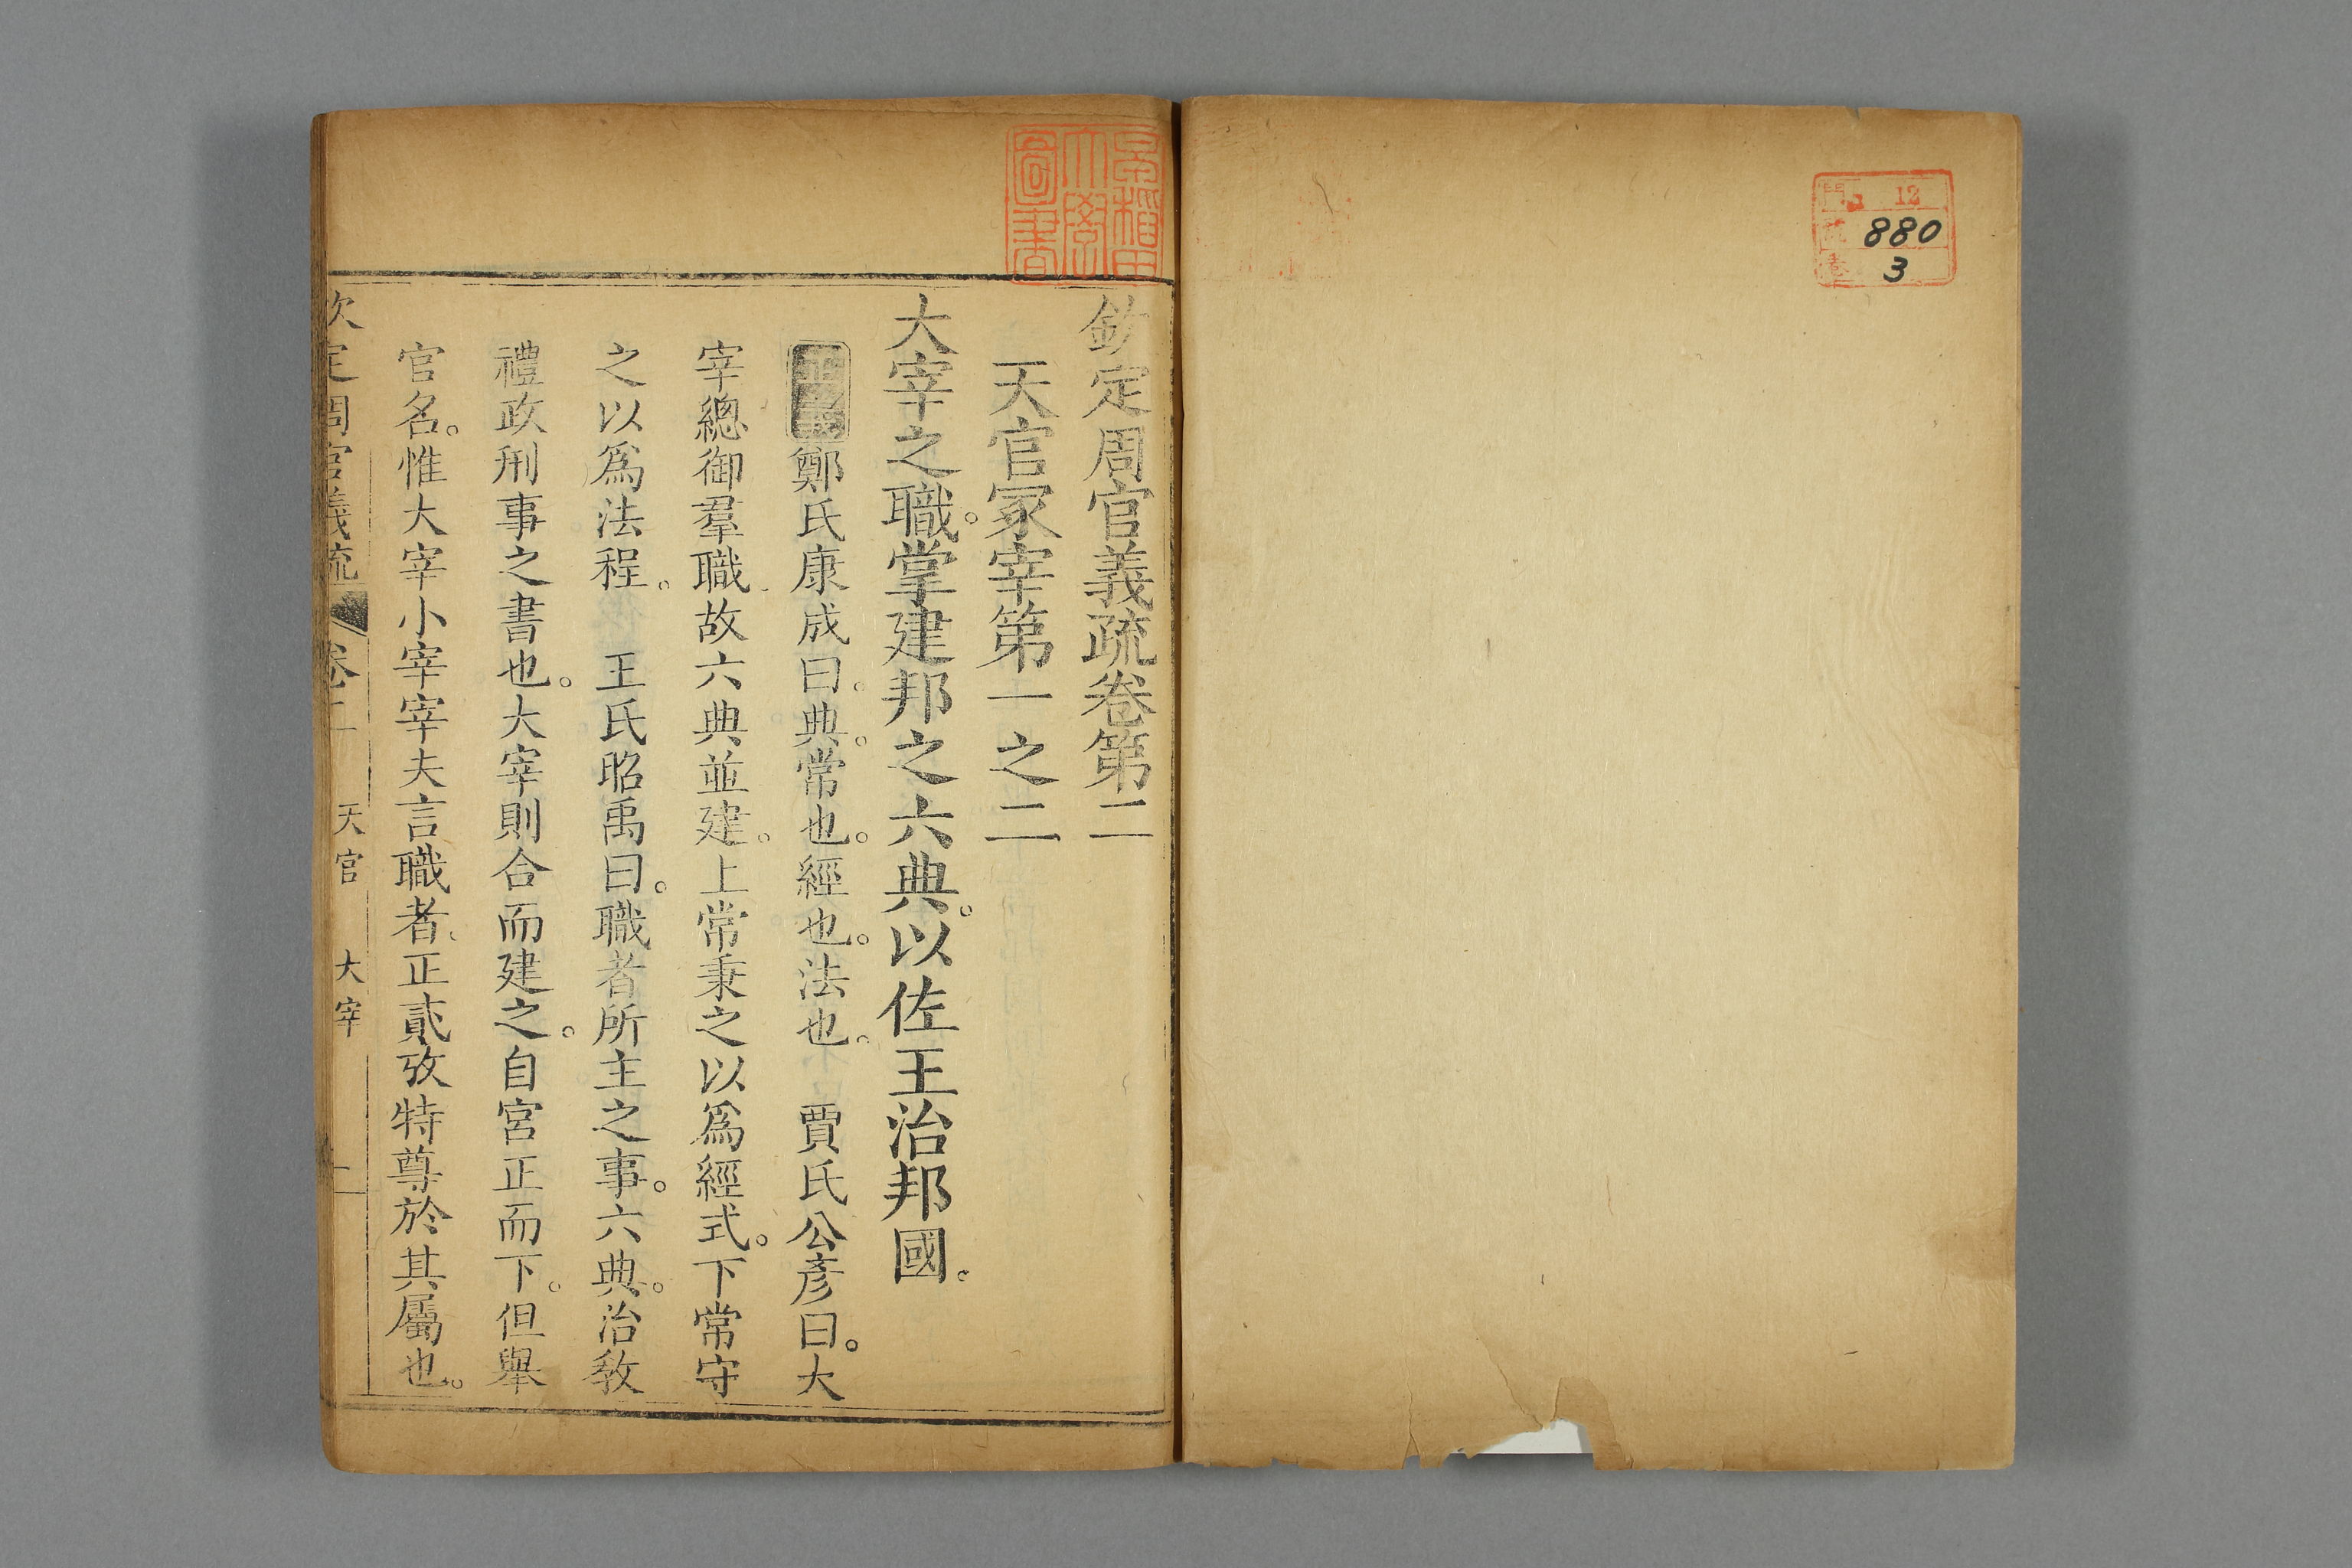 門 12
號 880
卷 3
早稲田
大學
圖書
欽定周官義疏卷第二
天官冢宰第一之二
大宰之職。掌建邦之六典。以佐王治邦國。
正義鄭氏康成曰。典。常也。經也。法也。 賈氏公彥曰。大
宰總御羣職。故六典並建。上常秉之以爲經式。下常守
之以爲法程。 王氏昭禹曰。職者所主之事。六典。治敎
禮政刑事之書也。大宰則合而建之。自宮正而下。但舉
官名。惟大宰小宰宰夫言職者。正貳攷特尊於其屬也。
欽定周官義疏 卷二 天官 大宰 一